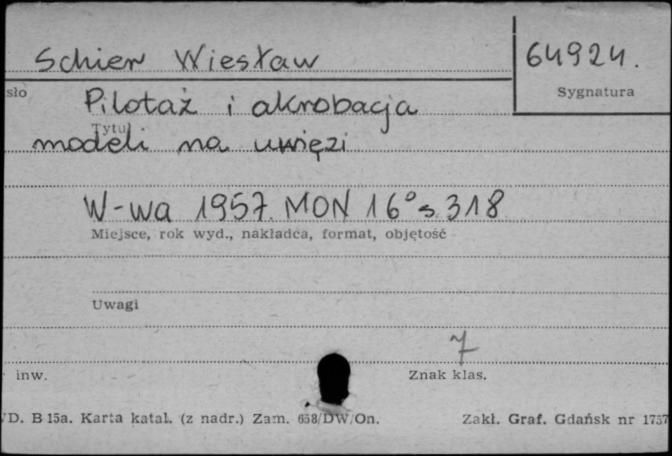 Schier Wiesław
64924.
sło
Sygnatura
Pilotaż i akrobacja
Tytuł
modeli na uwięzi
W-wa 1957. MON 16° s. 318
Miejsce, rok wyd., nakładca, format, objętość
Uwagi
7
inw.
Znak klas.
D. B 15a. Karta katal. (z nadr.) Zam. 658/DW/On.
Zakł. Graf. Gdańsk nr 1757